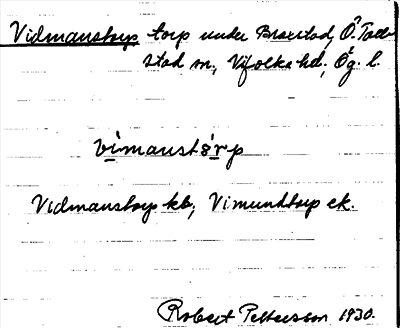 Vidmanstorp torp under Braxstad, Ö. Toll-
stad sn, Vifolka hd, Ög. l.
vìmanstår̀p
Vidmanstorp kb, Vimundtorp ek.
Robert Pettersson 1930.